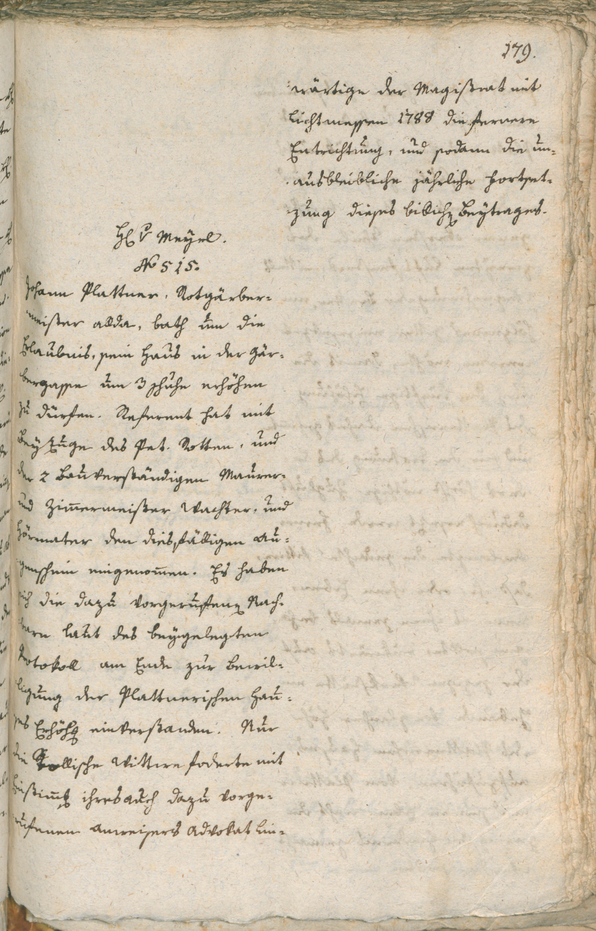 179.
wärtige der Magistrat mit
Lichtmessen 1788 die fernere
Entrichtung, und sodann die un-
ausbleibliche jährliche Fortset-
zung dieses Beytrages.
H: v Meyel.
No 515.
Johann Plattner, Rotgärber-
meister allda, bath um die
Erlaubnis, sein Haus in der Gär-
bergasse um 3 Schuhe erhöhen
zu dürfen. Referent hat mit
Beyzuge des Pet. Rotten, und
der 2 Bauverständigen Maurer-
und Zimmermeister Wachter, und
Hörmater den diesfälligen Au-
genschein eingenommen. Es haben
sich die dazu vorgerufenen Nach-
barn laut des beygelegten
Protokoll am Ende zur Bewil-
ligung der Plattnerischen Hau-
ses Erhöhg einverstanden. Nur
die Wittwe foderte mit
ihres auch dazu vorge-
rufenen Anweisers Advokat Lin-